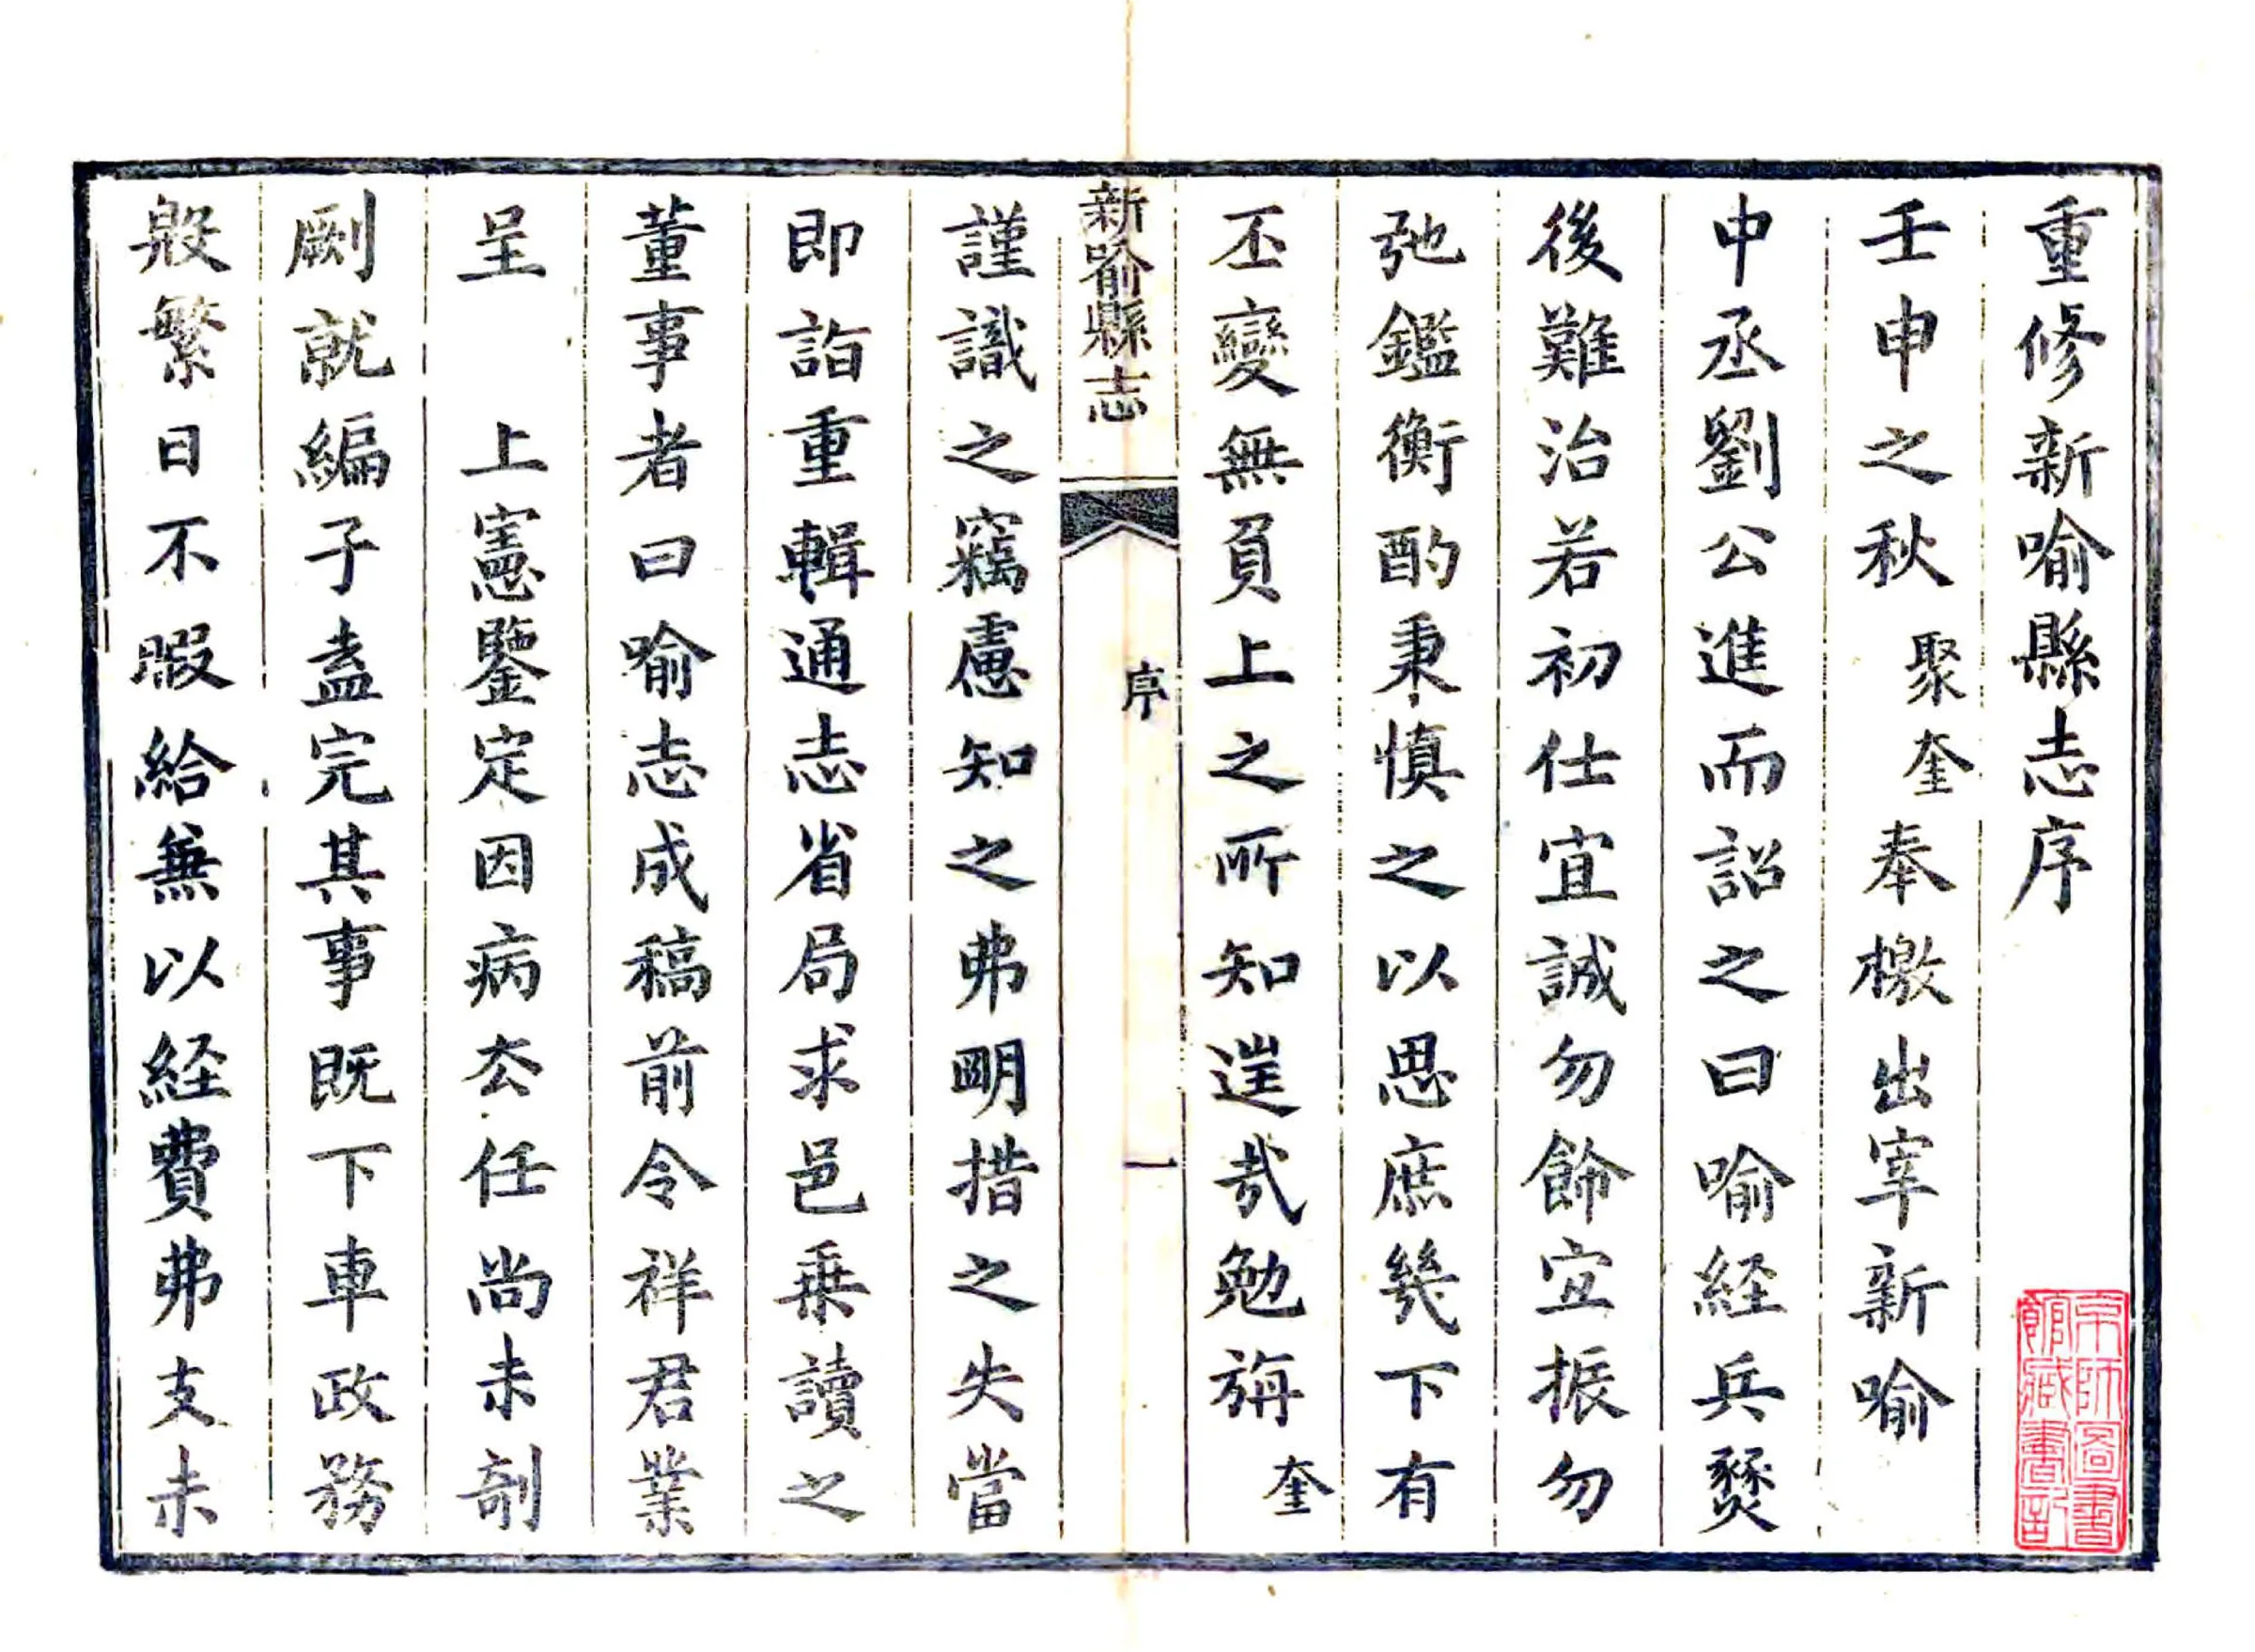 重修新喻縣志序
壬申之秋聚奎奉檄出宰新喻
中丞劉公進而詔之曰喻經兵燹
後難治若初仕宜誠勿餙宜振勿
弛鑑衡酌秉慎之以思庶幾下有
丕變無負上之所知遑哉勉旃奎
新喻縣志
序
一
謹識之竊慮知之弗明措之失當
即詣重輯通志省局求邑乗讀之
董事者曰喻志成稿前令祥君業
呈 上憲鑒定因病厺任尚未剞
劂就編子盍完其事既下車政務
殷繁日不暇給兼以経費弗支未
京師圖書
館藏書記